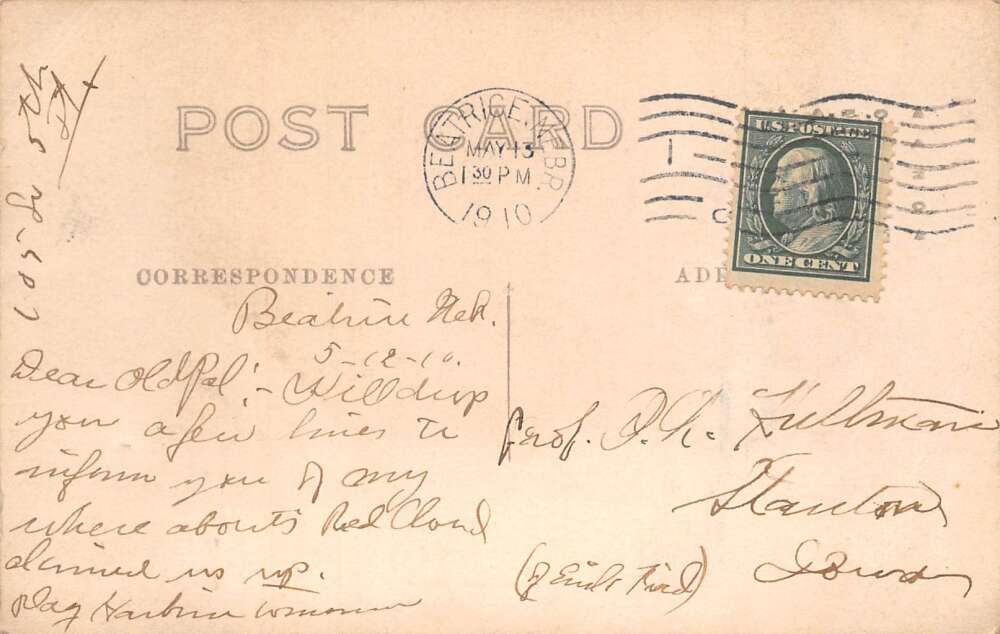 POST CARD
BEATRICE, NEBR.
MAY 13
1 30 PM
1910
U.S. POSTAGE
ONE CENT
CORRESPONDENCE
605 So 5th St
Beatrice Neb.
5-12-10.
Dear Old Pal! - Will drop
you a few lines to
inform you of my
where abouts Red Cloud
us up.
Play
Prof.
Stanton
Iowa